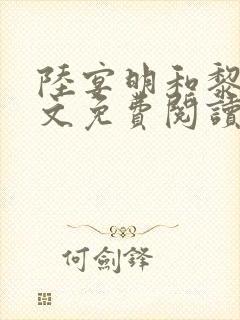 陸宴明和黎
文免費閱讀
何劍鋒